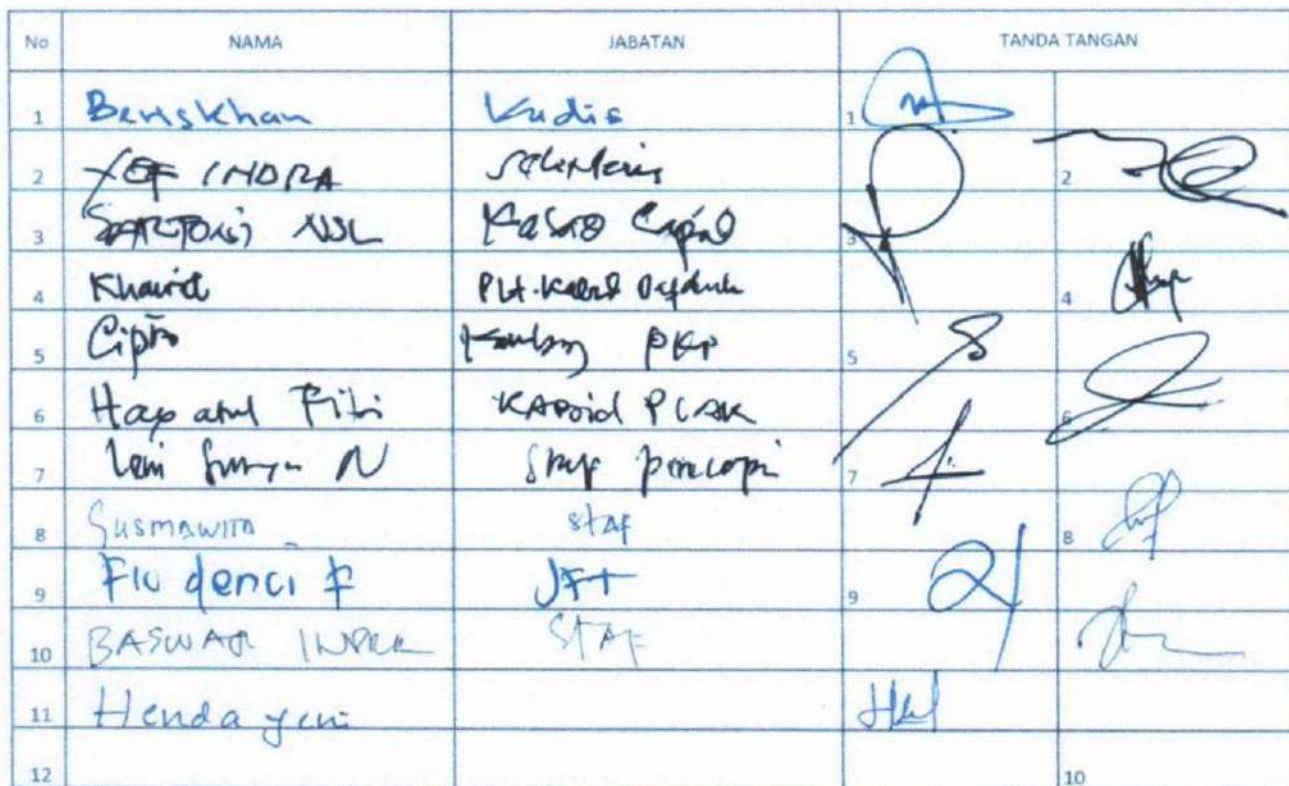 No NAMA JABATAN TANDA TANGAN
1 Beriskhan Kadis 1
2 YOF INDRA Sekretaris 2
3 SARTONIS NSL Kabid Capil 3
4 Khairid PLH. Kabid Dafduk 4
5 Cipto PKP 5
6 Hayatul Fitri KABid PIAK 6
7 Leni N Staf 7
8 SUSMAWITA STAF 8
9 Flo denci F JFT 9
10 BASWAR INDRA STAF
11 Henda yeni
12 10